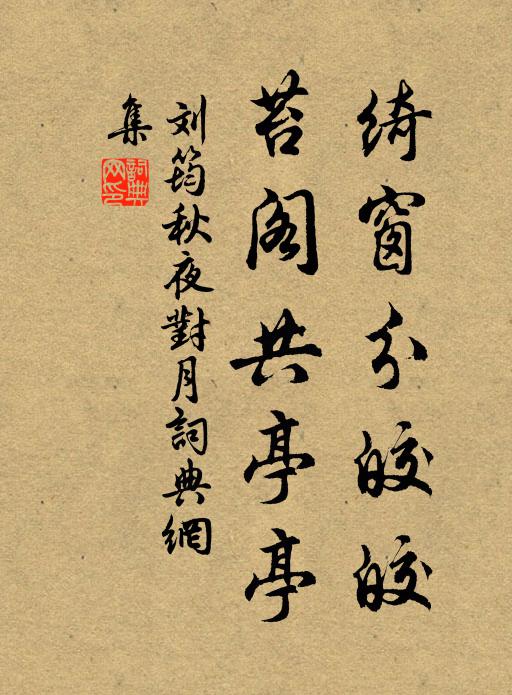 绮窗分皎皎
苔阁共亭亭
刘筠秋夜對月詞典網
集
詞典
网印